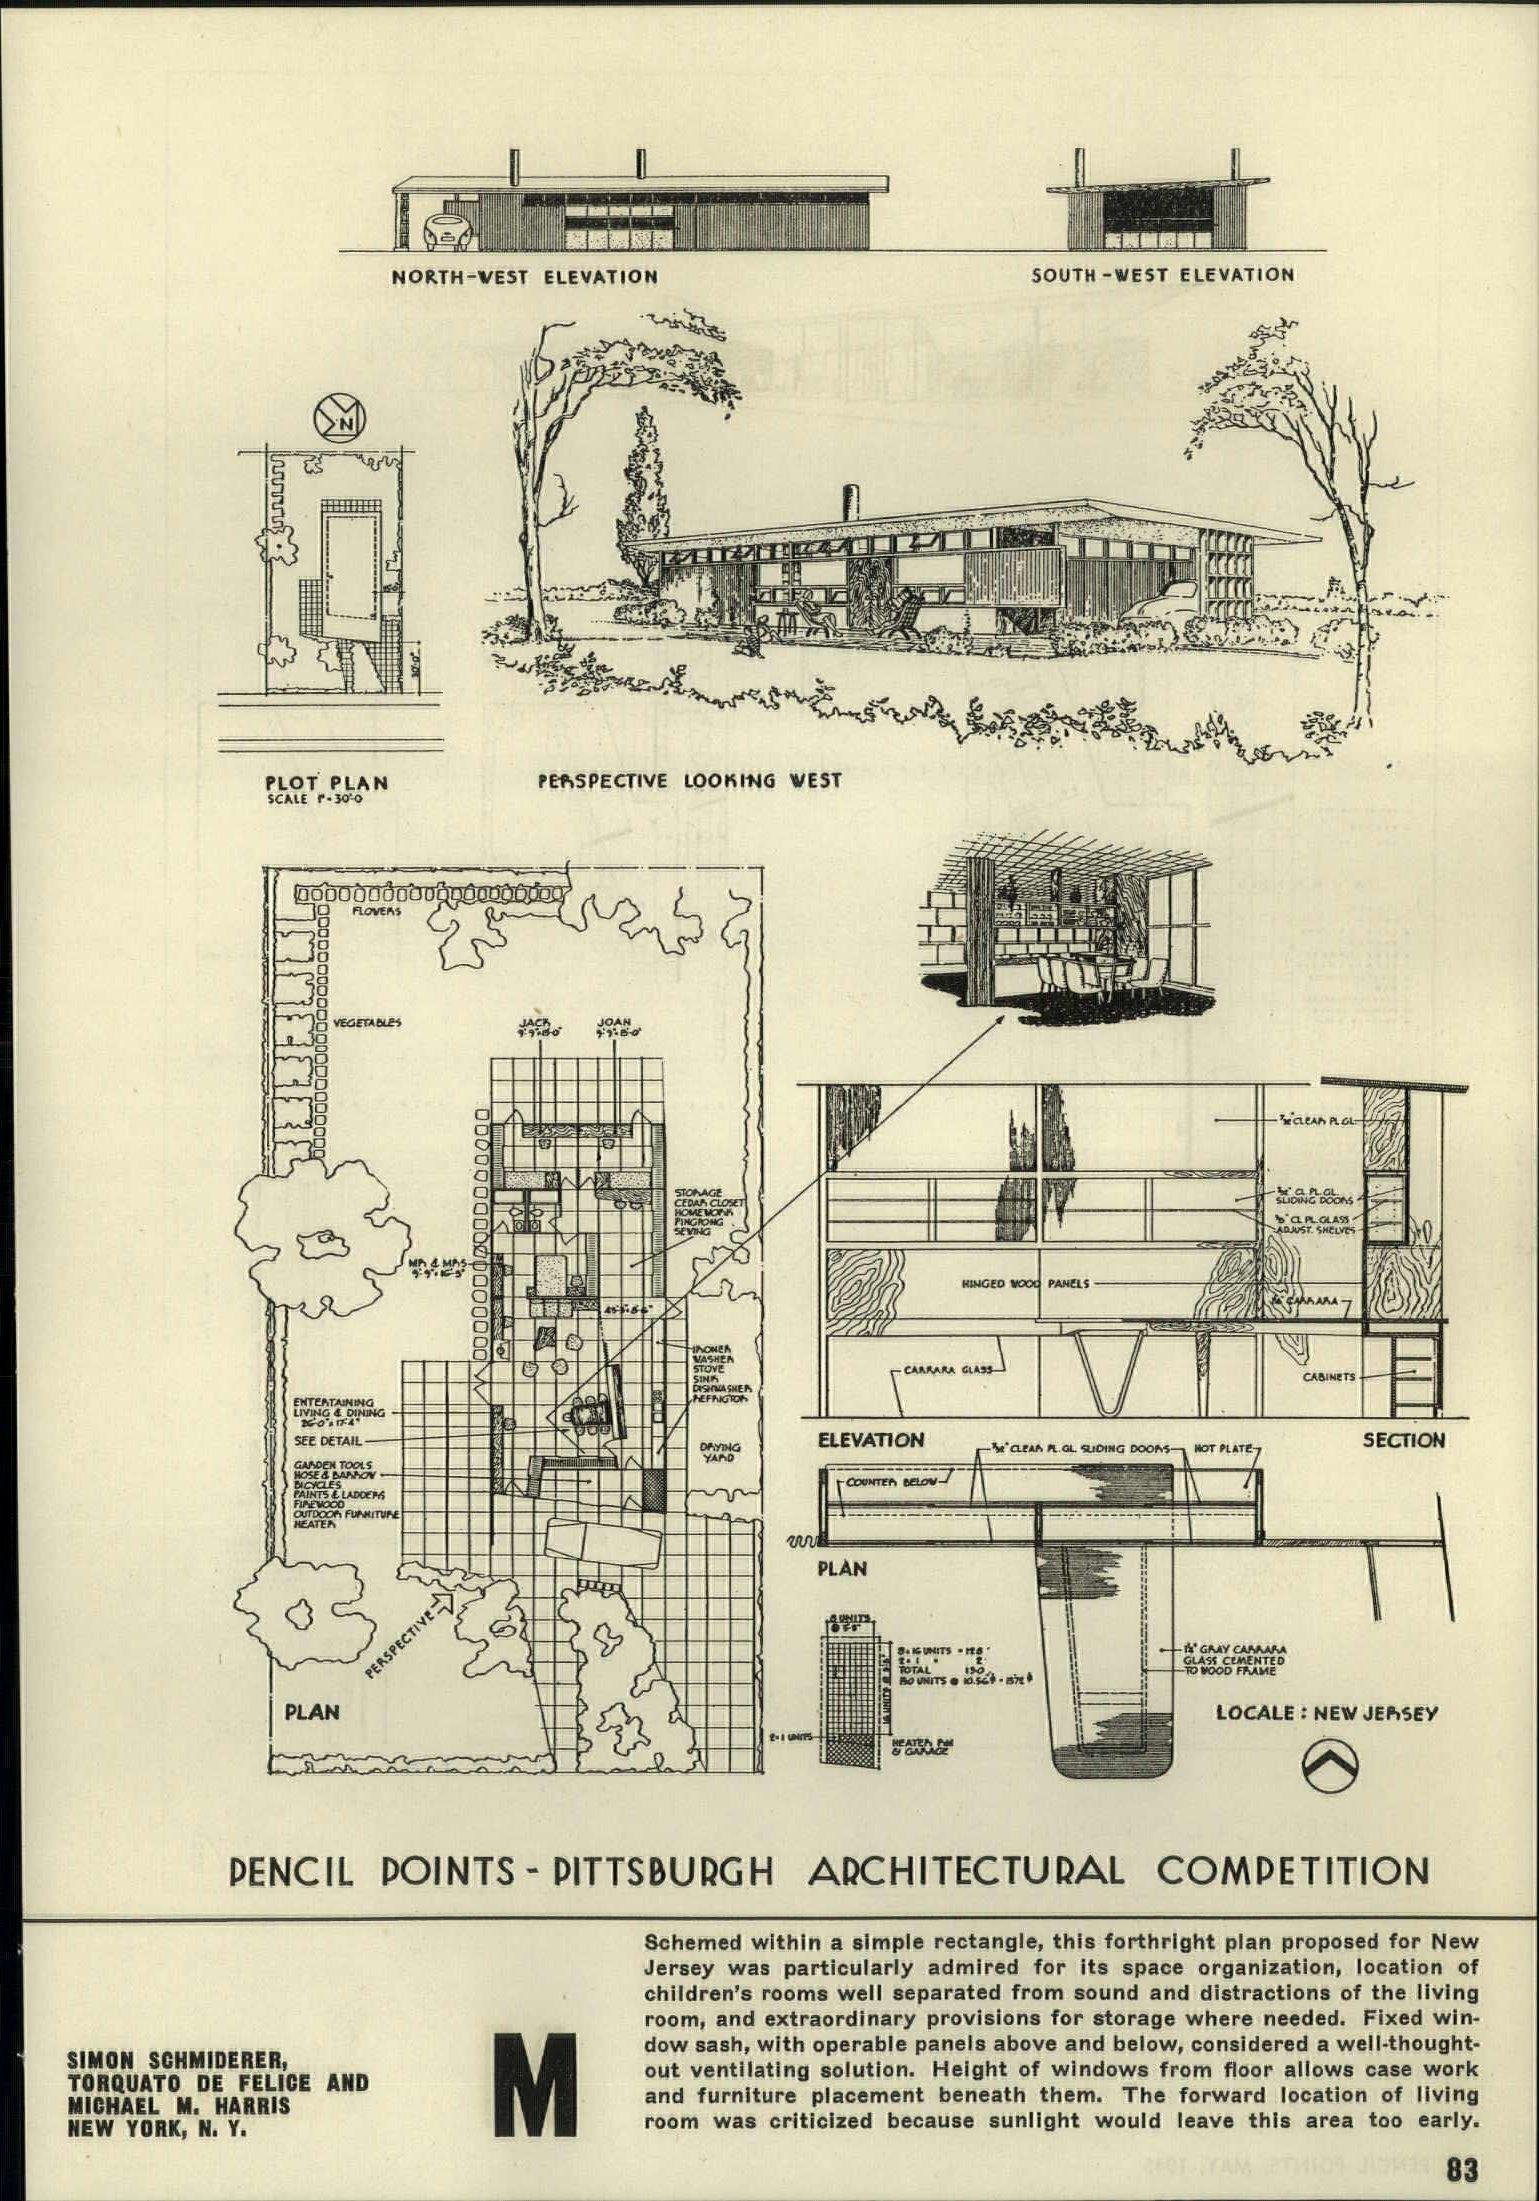 NORTH-WEST ELEVATION
SOUTH-WEST ELEVATION
N
30'-0"
PLOT PLAN
SCALE 1"=30'-0
PERSPECTIVE LOOKING WEST
FLOWERS
VEGETABLES
JACK
JOAN
STORAGE
CEDAR CLOSET
HOMEWORK
PINGPONG
SEWING
MR. & MRS
IRONER
WASHER
STOVE
SINK
DISHWASHER
REFRIGTOR
ENTERTAINING
LIVING & DINING
SEE DETAIL
GARDEN TOOLS
HOSE & BARROW
BICYCLES
PAINTS & LADDERS
FIREWOOD
OUTDOOR FURNITURE
HEATER
DRYING
YARD
PERSPECTIVE
PLAN
CLEAR PL.GL.
CL. PL. GL.
SLIDING DOORS
CL PL. GLASS
ADJUST. SHELVES
HINGED WOOD PANELS
CARRARA
CARRARA GLASS
CABINETS
ELEVATION
SECTION
CLEAR PL. GL. SLIDING DOORS
HOT PLATE
COUNTER BELOW
PLAN
8 UNITS
8×16 UNITS = 128
2×1 " 2
TOTAL 130
130 UNITS @ 10.56
16 UNITS
2×1 UNITS
HEATER RM
& GARAGE
GRAY CARRARA
GLASS CEMENTED
TO WOOD FRAME
LOCALE: NEW JERSEY
PENCIL POINTS - PITTSBURGH ARCHITECTURAL COMPETITION
SIMON SCHMIDERER,
TORQUATO DE FELICE AND
MICHAEL M. HARRIS
NEW YORK, N. Y.
M
Schemed within a simple rectangle, this forthright plan proposed for New
Jersey was particularly admired for its space organization, location of
children's rooms well separated from sound and distractions of the living
room, and extraordinary provisions for storage where needed. Fixed win-
dow sash, with operable panels above and below, considered a well-thought-
out ventilating solution. Height of windows from floor allows case work
and furniture placement beneath them. The forward location of living
room was criticized because sunlight would leave this area too early.
83